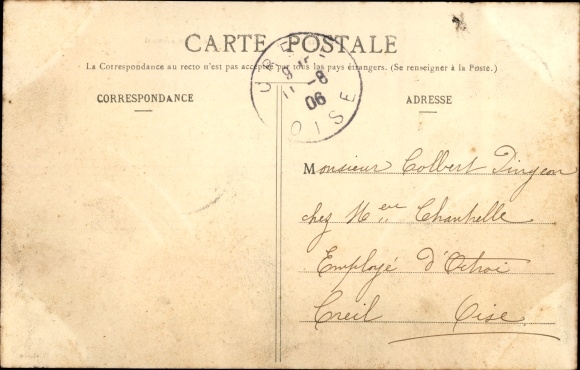 CARTE POSTALE
La Correspondance au recto n'est pas acceptée par tous les pays étrangers. (Se renseigner à la Poste.)
CORRESPONDANCE
ADRESSE
9
11 -8
06
OISE
Monsieur Colbert Pingeon
chez Meur Chantrelle
Employé d'Octroi
Creil Oise